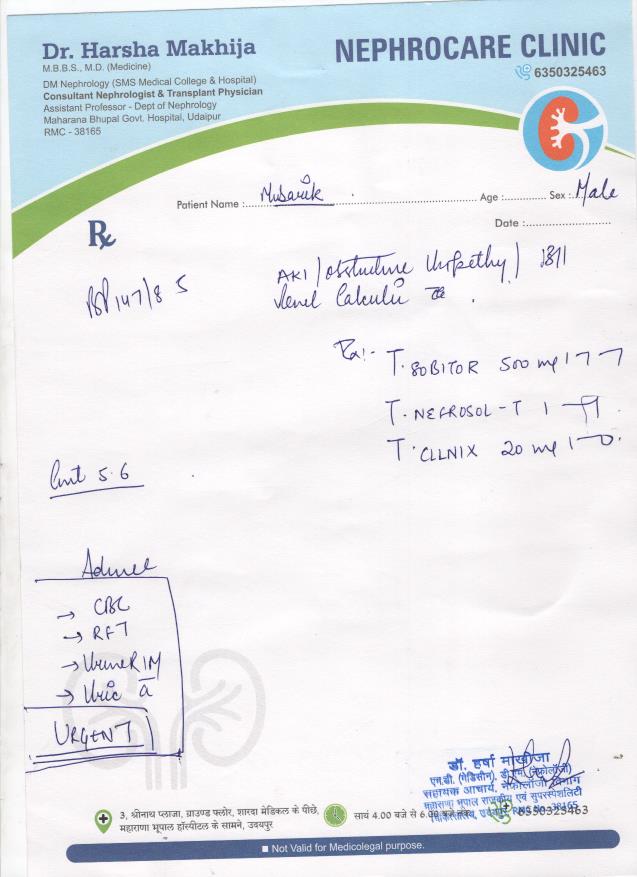 Dr. Harsha Makhija
M.B.B.S., M.D. (Medicine)
DM Nephrology (SMS Medical College & Hospital)
Consultant Nephrologist & Transplant Physician
Assistant Professor - Dept of Nephrology
Maharana Bhupal Govt. Hospital, Udaipur
RMC - 38165
NEPHROCARE CLINIC
6350325463
Patient Name : Musarik Age : Sex : Male
Date :
Rx
AKI / obstructive Uropathy /
Renal Calculi
BP 147/85
Rx:-
T. SOBITOR 500 mg 1
T. NEFROSOL-T 1
T. CLLNIX 20 mg 1-0
5.6
Advice
→ CBC
→ RFT
→ Urine R/M
→ Uric a
URGENT
डॉ. हर्षा माखीजा
एम.डी. (मेडिसीन), डी.एम. (नेफ्रोलॉजी)
सहायक आचार्य, नेफ्रोलॉजी विभाग
महाराणा भूपाल राजकीय एवं सुपरस्पेशलिटी
चिकित्सालय, उदयपुर RMC No. 38165
3, श्रीनाथ प्लाजा, ग्राउण्ड फ्लोर, शारदा मेडिकल के पीछे,
महाराणा भूपाल हॉस्पीटल के सामने, उदयपुर
सायं 4.00 बजे से 6.00 बजे तक
6350325463
Not Valid for Medicolegal purpose.